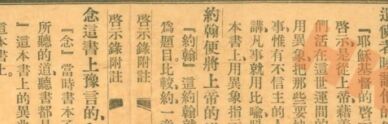 『耶穌基督的啓
啓示是從上帝藉着
們活在這世運間的
用異象把那些要快
事惟有不信主的
講凡事就用比喻
本書上用異象指示
約翰便將上帝的道
『約翰』這約翰就
爲題目比較約一
啓示錄附註
啓示錄附註
念這書上豫言的、
『念』當時書本子
所聽的道聽書都是
』這本書上的異象
這本書上。